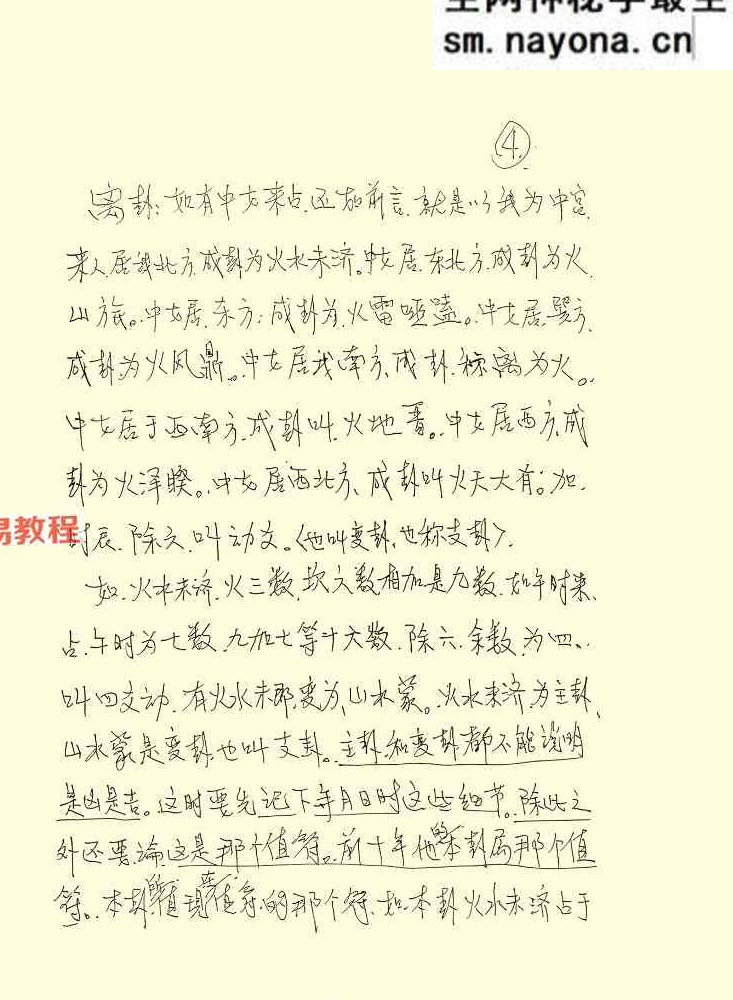 sm.nayona.cn
④
离卦:如有中女来占,还如前言,就是以我为中宫,
来人居我北方,成卦为火水未济。中女居东北方,成卦为火
山旅。中女居东方:成卦为火雷噬嗑。中女居巽方,
成卦为火风鼎。中女居我南方,成卦称离为火。
中女居于西南方,成卦叫火地晋。中女居西方,成
卦为火泽睽。中女居西北方,成卦叫火天大有。加
易教程
时辰除六,叫动爻。〈也叫变卦,也称支卦〉。
如火水未济,火三数,坎六数相加是九数,如午时来
占,午时为七数,九加七等十六数,除六,余数为四,
叫四爻动,有火水未那,变为山水蒙。火水未济为主卦,
山水蒙是变卦,也叫支卦。主卦和变卦都不能说明
是凶是吉。这时要先记下年月日时这些细节。除此之
外还要论这是那个值符。前十年他的本卦属那个值
符。本卦值现值符的那个符,如本卦火水未济占于